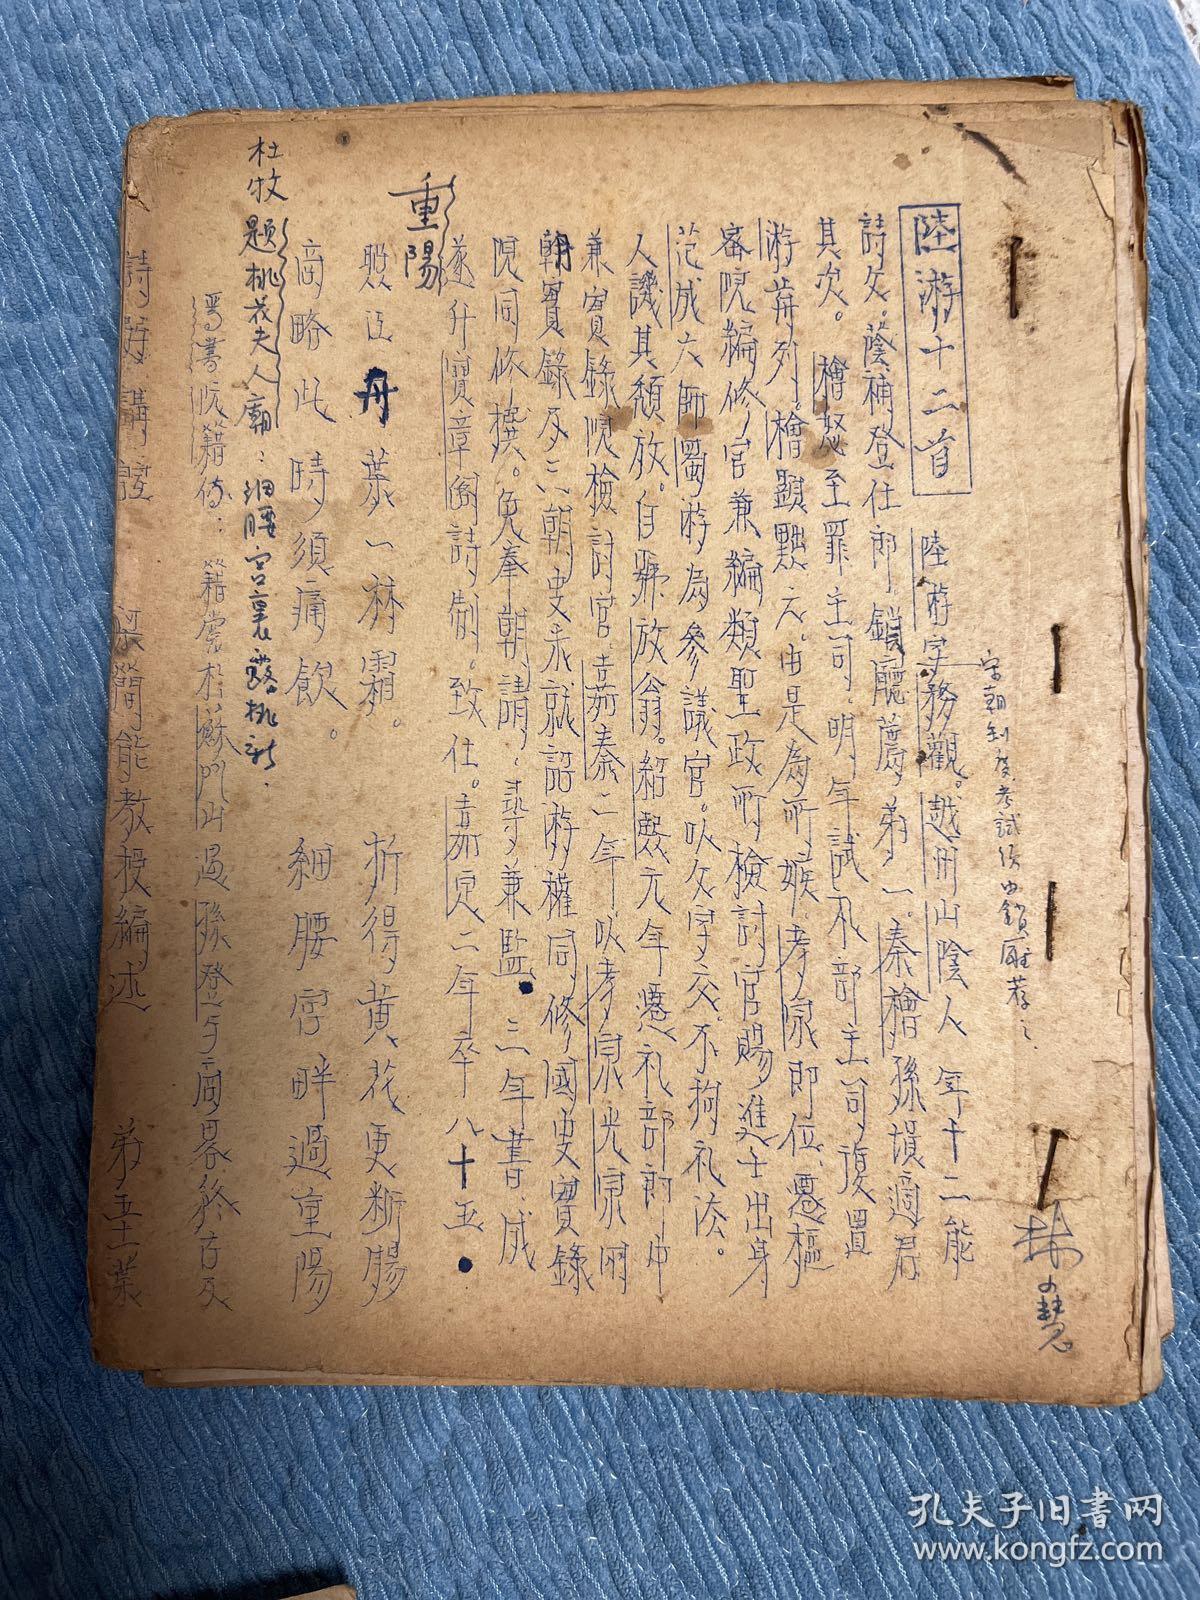 宋朝制度考試須由鎖廳荐之
林少慧
陸游十二首
陸游字務觀。越州山陰人 年十二能
詩文。蔭補登仕郎。鎖廳薦第一。秦檜孫塤適居
其次。檜怒至罪主司。明年試礼部主司復置
游前列。檜顯黜之。由是為所嫉。孝宗即位、遷樞
密院編修官兼編類聖政所檢討官賜進士出身
范成大帥蜀游為參議官。以文字交。不拘礼法。
人譏其頹放。自號放翁。紹熙元年遷礼部郎中
兼實錄院檢討官。嘉泰二年以孝宗光宗兩
朝實錄及三朝史未就詔游權同修國史實錄
院同修撰。免奉朝請、尋兼監。三年書成
遂升寶章閣詩制。致仕。嘉定二年卒八十五。
重陽
照江丹葉一林霜。 折得黃花更斷腸
商略此時須痛飲。 細腰宮畔過重陽
杜牧題桃花夫人廟：細腰宮裏露桃新．
晉書阮籍傳：籍嘗於蘇門山遇孫登与商略終古及
詩選講證 梁簡能教授編述 第五十葉
孔夫子旧书网
www.kongfz.com